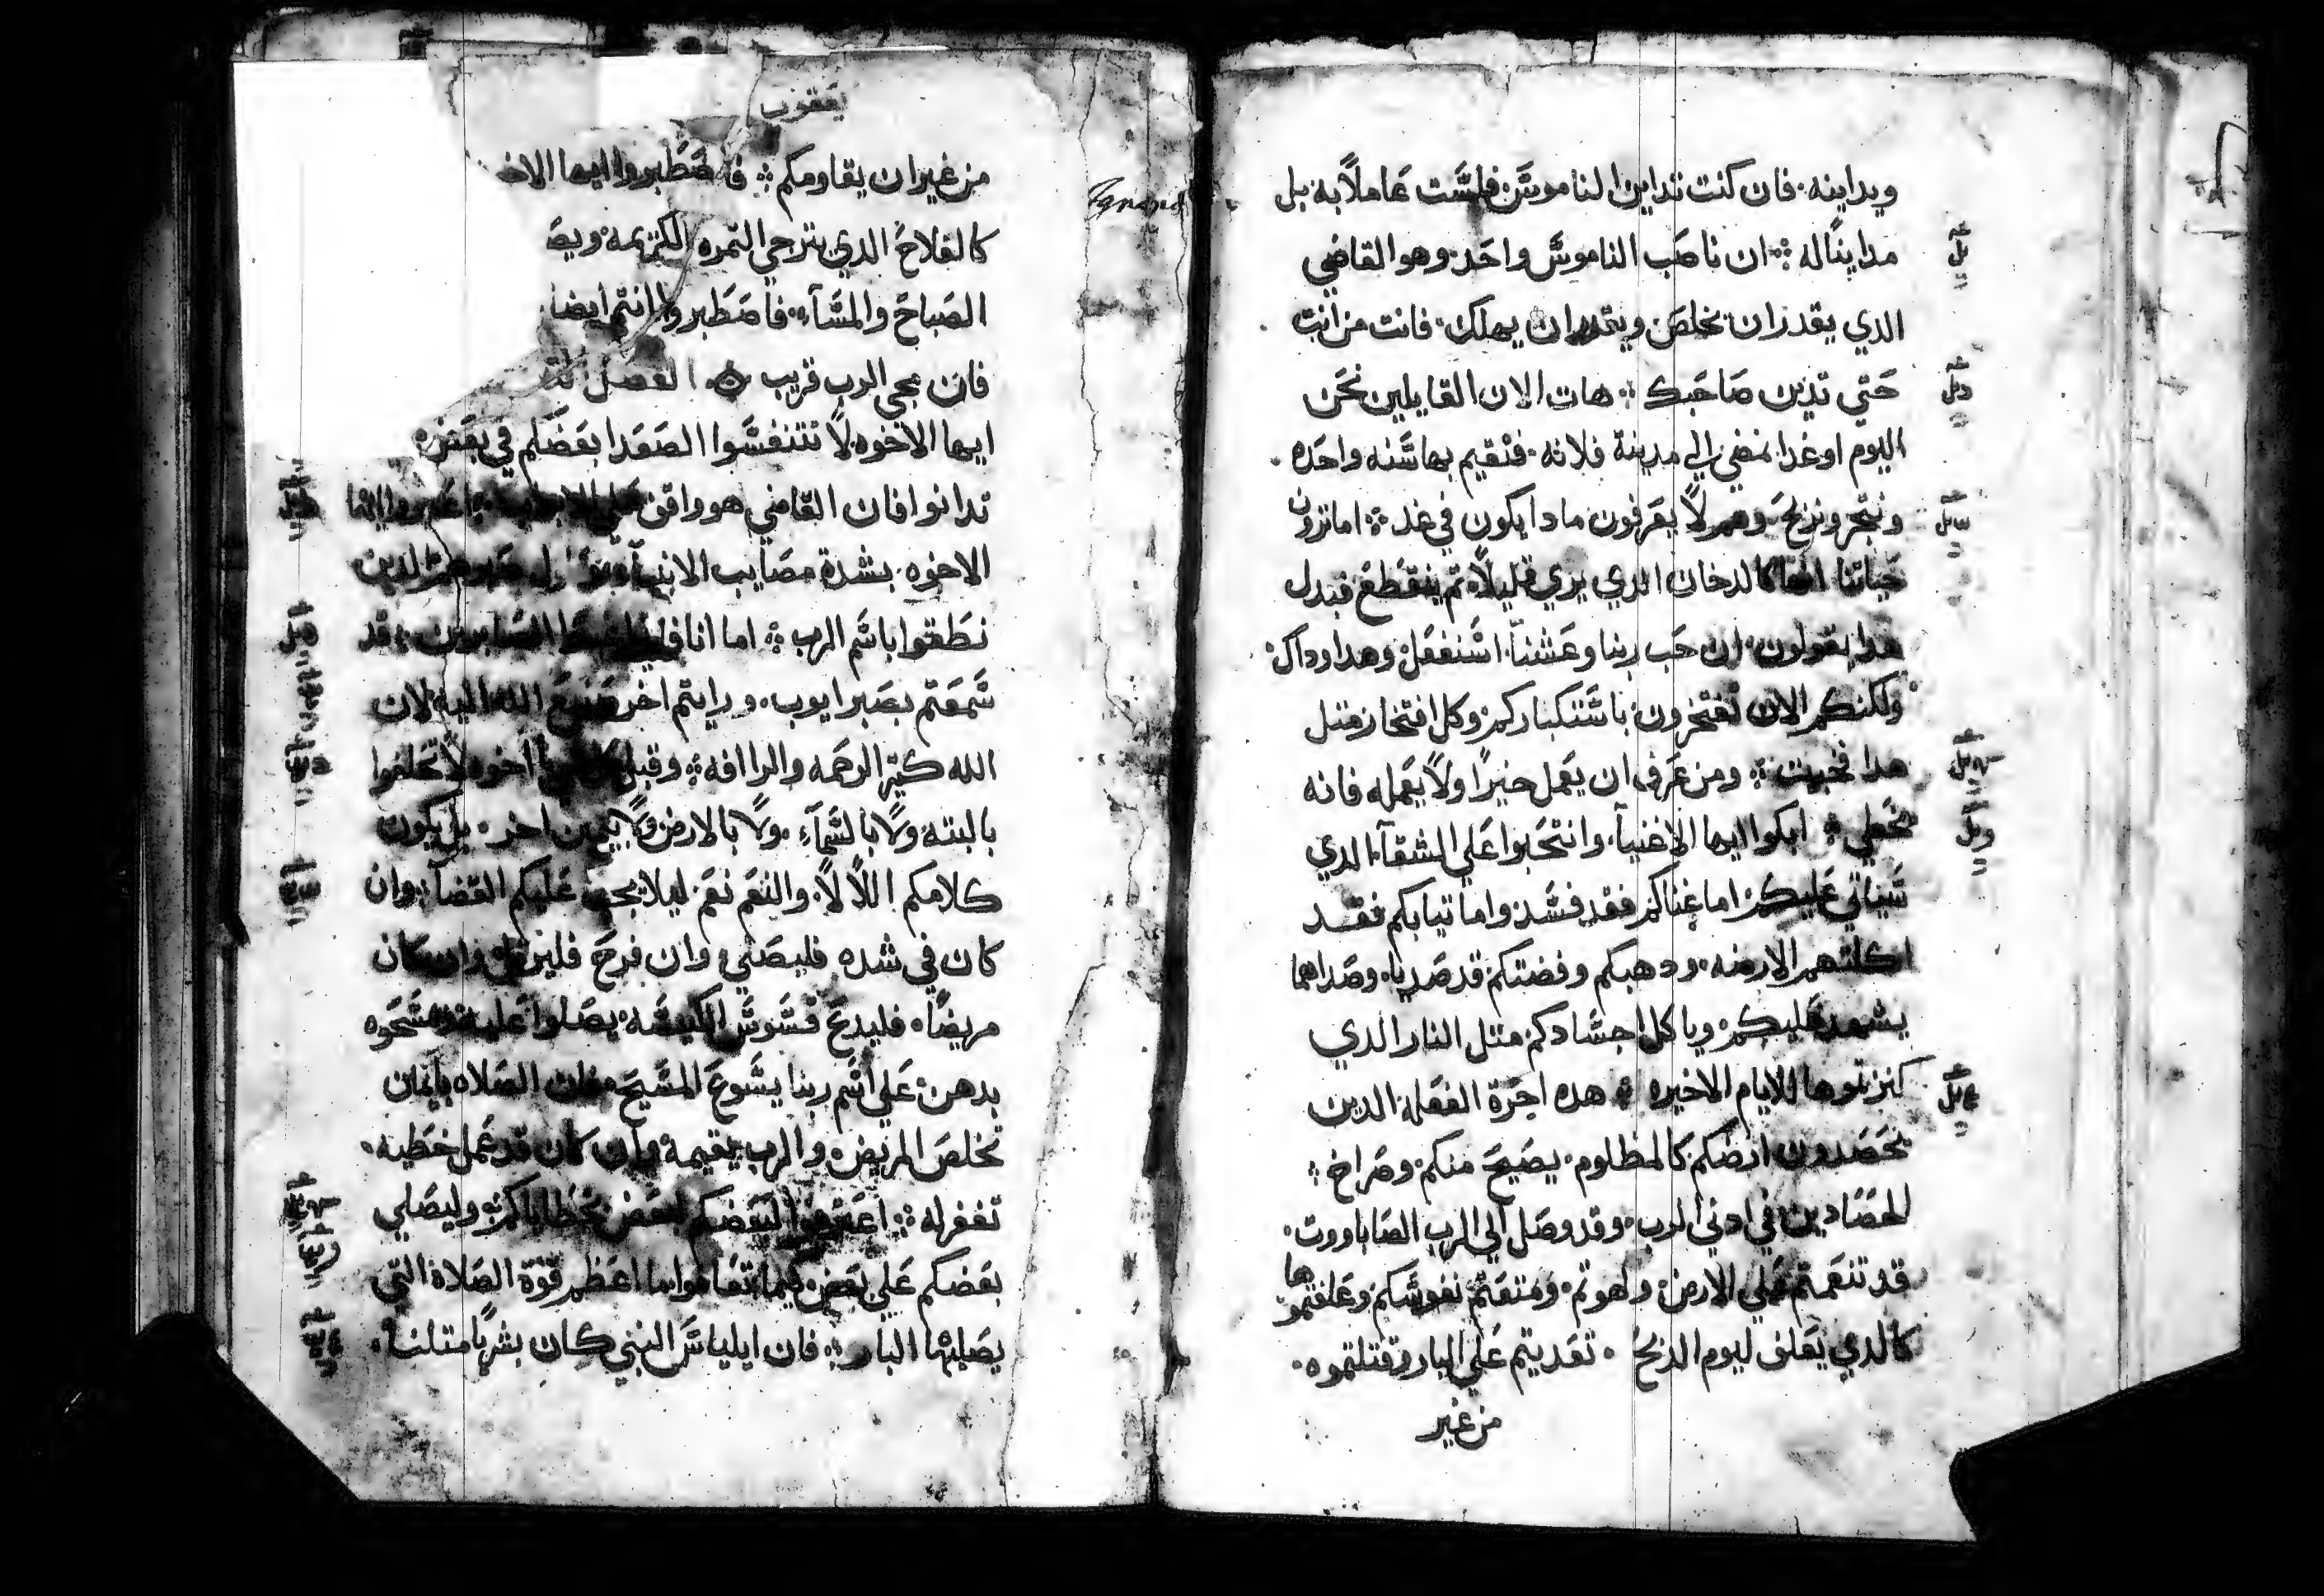 ويداينه فان كنت تداين الناموس فلست عاملاً به بل
مدايناً له ان ناصب الناموس واحد وهو القاضي
الذي يقدر ان يخلص ويقدر ان يهلك فانت من انت
حتي تدين صاحبك هات الان القايلين نحن
اليوم او غدا نمضي الي مدينة فلانه فنقيم بها سنه واحده
ونتجر ونربح وهم لا يعرفون مادا يكون في غد اما ترون
حياتنا انها كالدخان الدي يري قليلاً ثم ينقطع فبدل
هدا يقولون ان حب ربنا وعشنا اسنفعل وهدا وداك
ولكنكم الان تفتخرون باستكباركم وكل افتخار متل
هدا فخبيت ومن عرف ان يعمل خيراً ولا يعمله فانه
يخطي ابكوا ايها الاغنياء وانتحبوا علي الشقاء الدي
سياتي عليكم اما غناكم فقد فسد واما تيابكم فقد
اكلتهم الارضه ودهبكم وفضتكم قد صديا وصداهما
يشهد عليكم وياكل اجسادكم متل النار الدي
كنزتموها للايام الاخيره هده اجرة الفعله الدين
يحصدون ارضكم كالمظلوم يصيح منكم وصراخ
الحصادين في ادني الرب وقد وصل الي الرب الصاباووت
قد تنعمتم علي الارض ولهوتم ومتعتم نفوسكم وعلفتموها
كالدي يعلف ليوم الدبح تعديتم علي البار وقتلتموه
من غير
يعقوب
من غير ان يقاومكم فاصطبروا ايها الاخ
كالفلاح الدي يترجي التمره الكريمه ويص
الصباح والمساء فاصطبروا انتم ايضا
فان مجي الرب قريب الفصل
ايها الاخوه لا تتنفسوا الصعدا بعضكم في بعض
تدانوا فان القاضي هو واقف علي
الاخوه بشدة مصايب الانبياء الدين
نطقوا باسم الرب اما انا قد
سمعتم بصبر ايوب ورايتم اخر صنيع الله اليه لان
الله كتير الرحمه والراافه وقبل يا اخوه لا تحلفوا
بالبته ولا بالسماء ولا بالارض ولا بيمين اخر بل يكون
كلامكم اللا لا والنعم نعم ليلا يجب عليكم القضاء وان
كان في شده فليصلي وان فرح فليرتل وان كان
مريضاً فليدع قسوس الكنيسه يصلوا عليه ومسحوه
بدهن علي اسم ربنا يسوع المسيح فان الصلاه بايمان
تخلص المريض والرب يقيمه وان كان قد عمل خطيه
تغفر له اعترفوا لبعضكم بعض بخطاياكم وليصلي
بعضكم علي بعض كيما تعافوا ما اعظم قوة الصلاة التي
يصليها البار فان ايلياس النبي كان بشرياً متلنا